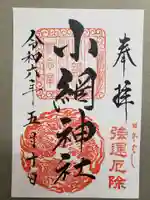 奉拝
強運厄除
小網神社
令和六年五月十日